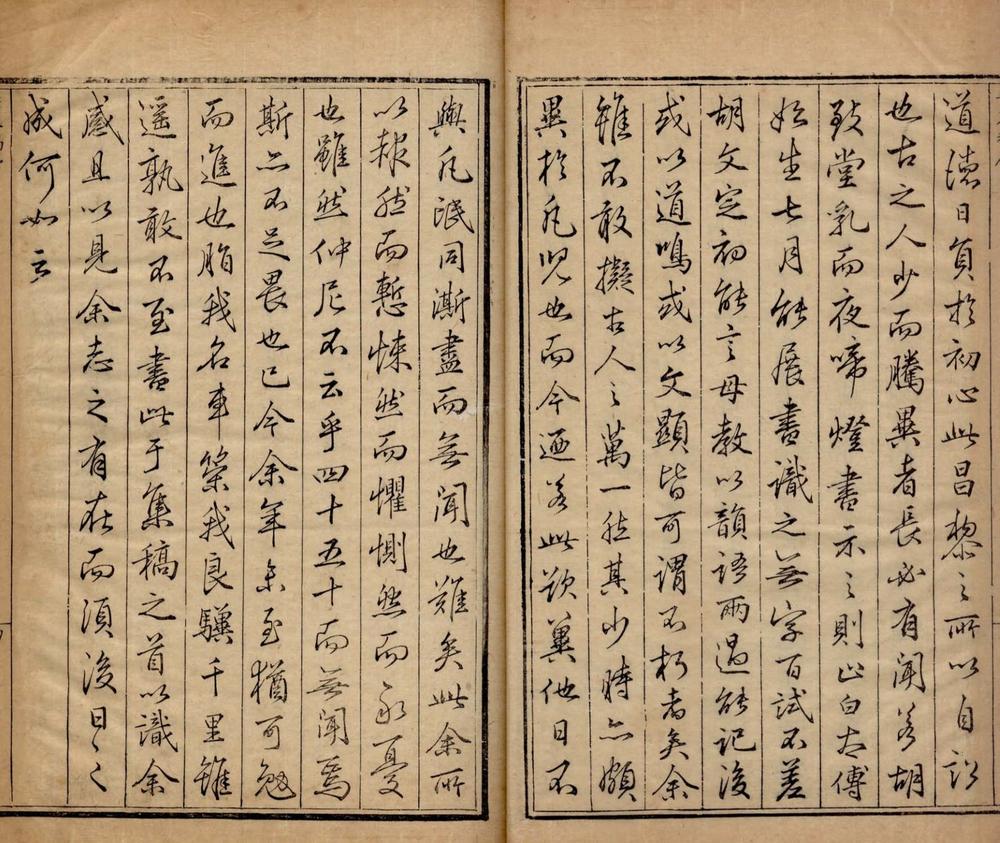 道德日負於初心此昌黎之所以自訟
也古之人少而騰異者長必有聞若胡
致堂乳而夜啼燈書示之則止白太傅
始生七月能展書識之無字百試不差
胡文定初能言母教以韻語兩過能記後
或以道鳴或以文顯皆可謂不朽者矣余
雖不敢擬古人之萬一然其少時亦頗
異於凡兒也而今迺若此欲冀他日不
與凡泯同澌盡而無聞也難矣此余所
以赧然而慙悚然而懼惻然而永憂
也雖然仲尼不云乎四十五十而無聞焉
斯亦不足畏也已今余年未至猶可勉
而進也脂我名車策我良驥千里雖
遥孰敢不至書此于集稿之首以識余
感且以見余志之有在而須後日之
成何如云